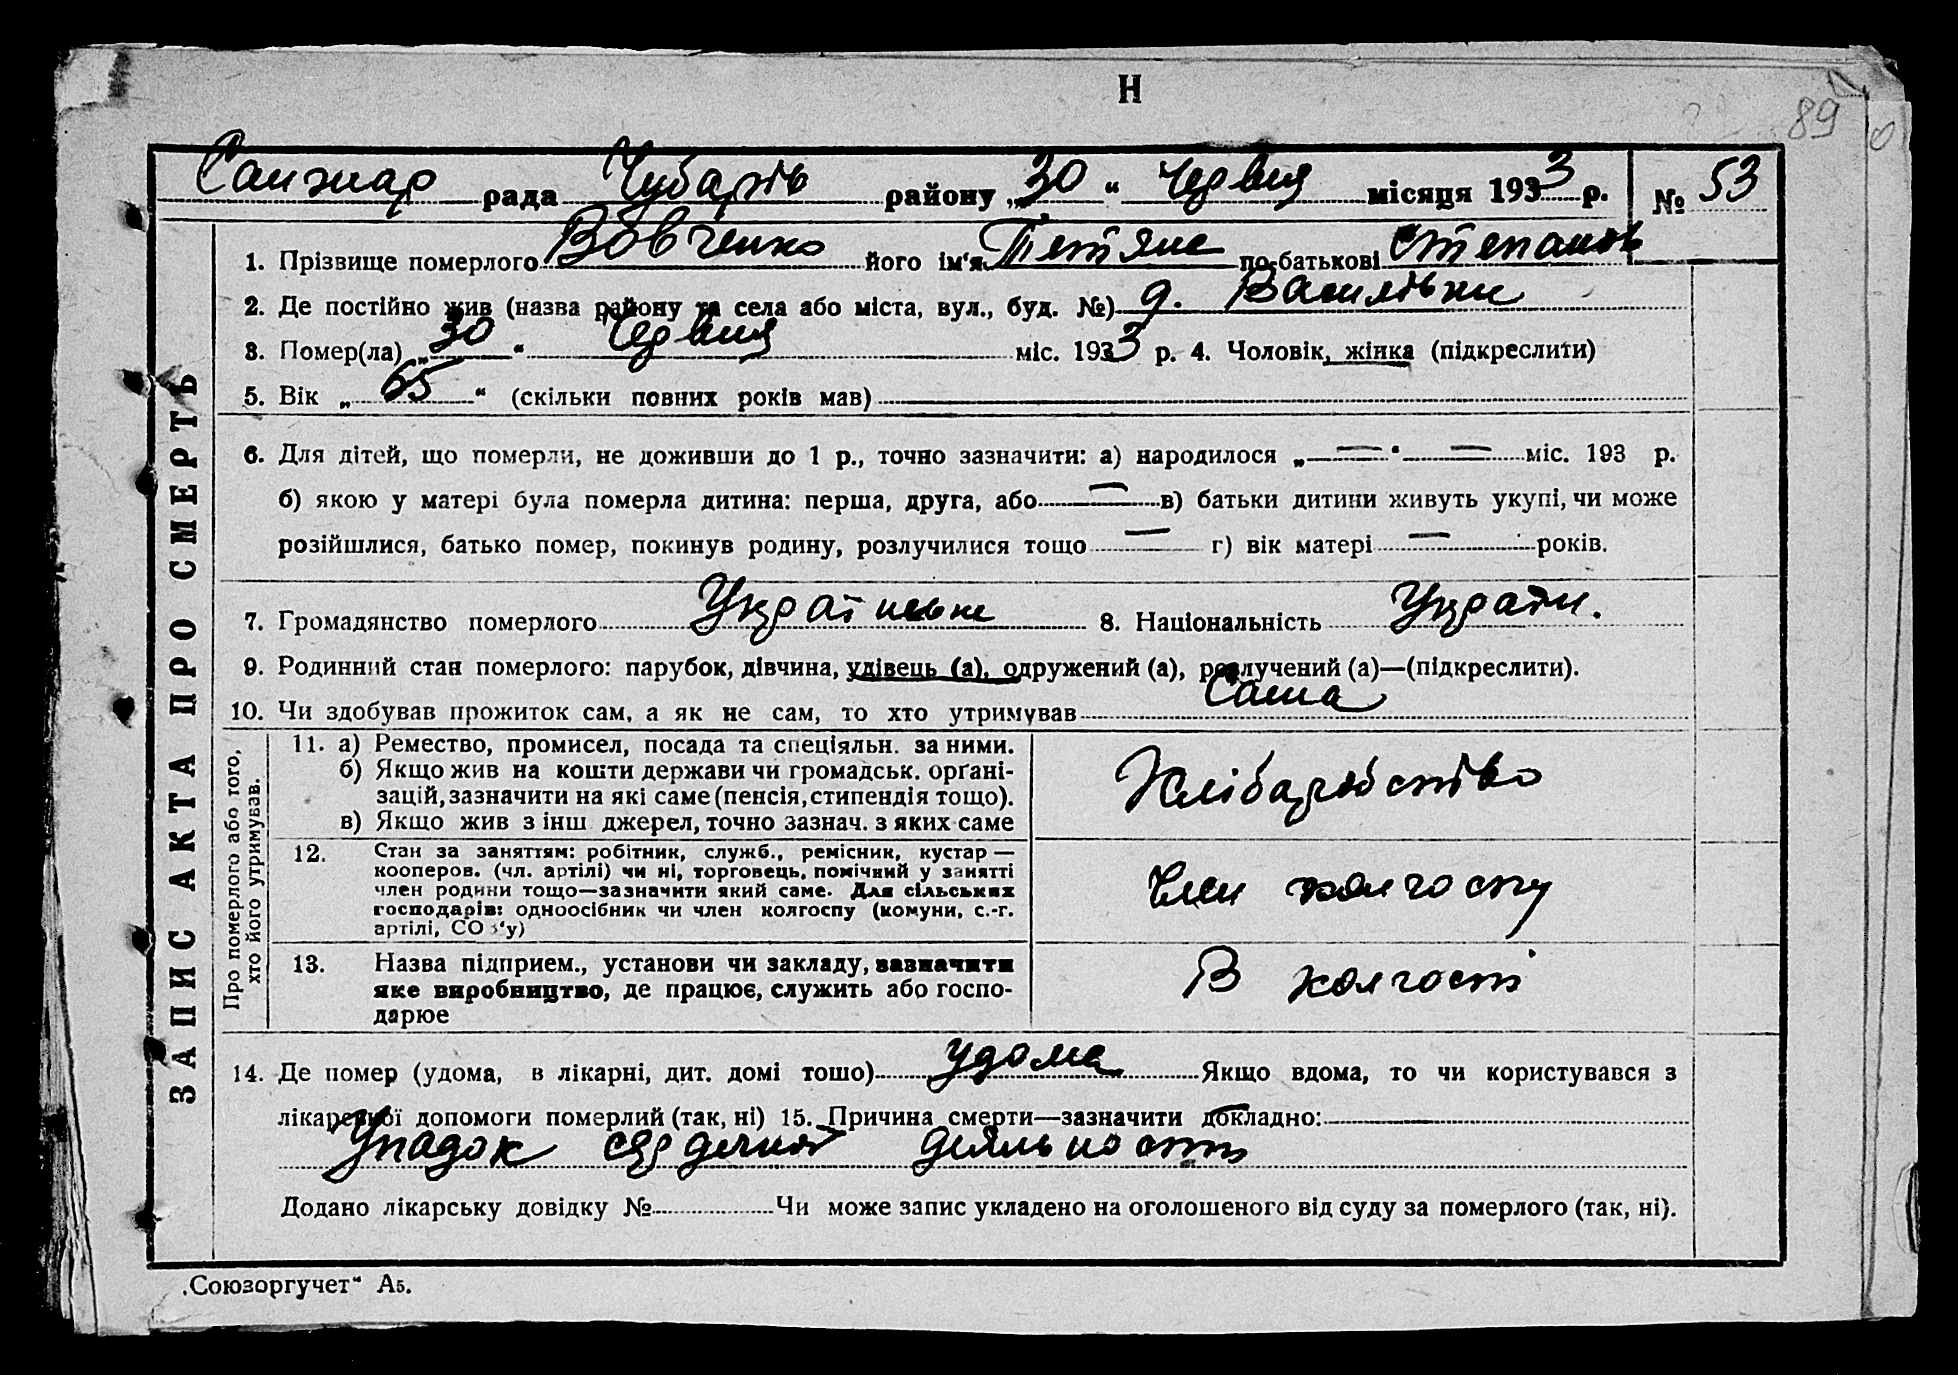 Н
89
Санжар рада Чубарів району „30“ Червня місяця 1933 р. № 53
1. Прізвище померлого Вовченко його ім'я Тетяна по-батькові Степанів
2. Де постійно жив (назва району та села або міста, вул., буд. №) д. Василівки
3. Помер(ла) „30“ Червня міс. 1933 р. 4. Чоловік, жінка (підкреслити)
5. Вік „65“ (скільки повних років мав)
6. Для дітей, що померли, не доживши до 1 р., точно зазначити: а) народилося „—“ — міс. 193 р.
б) якою у матері була померла дитина: перша, друга, або — в) батьки дитини живуть укупі, чи може
розійшлися, батько помер, покинув родину, розлучилися тощо — г) вік матері — років.
7. Громадянство померлого Українське 8. Національність
9. Родинний стан померлого: парубок, дівчина, удівець (а), одружений (а), розлучений (а)—(підкреслити).
10. Чи здобував прожиток сам, а як не сам, то хто утримував Сама
ЗАПИС АКТА ПРО СМЕРТЬ
Про померлого або того,
хто його утримував.
11. а) Ремество, промисел, посада та спеціяльн. за ними.
б) Якщо жив на кошти держави чи громадськ. орґані-
зацій, зазначити на які саме (пенсія, стипендія тощо).
в) Якщо жив з інш джерел, точно зазнач. з яких саме
Хлібаробство
12. Стан за заняттям: робітник, служб., ремісник, кустар —
кооперов. (чл. артілі) чи ні, торговець, помічний у занятті
член родини тощо—зазначити який саме. Для сільських
господарів: одноосібник чи член колгоспу (комуни, с.-г.
артілі, СОЗ'у)
Член колгоспу
13. Назва підприєм., установи чи закладу, зазначити
яке виробництво, де працює, служить або госпо-
дарює
В колгоспі
14. Де помер (удома, в лікарні, дит. домі тошо) Удома Якщо вдома, то чи користувався з
лікарської допомоги померлий (так, ні) 15. Причина смерти—зазначити докладно:
Упадок сердечной деяльності
Додано лікарську довідку № Чи може запис укладено на оголошеного від суду за померлого (так, ні).
„Союзоргучет“ А5.